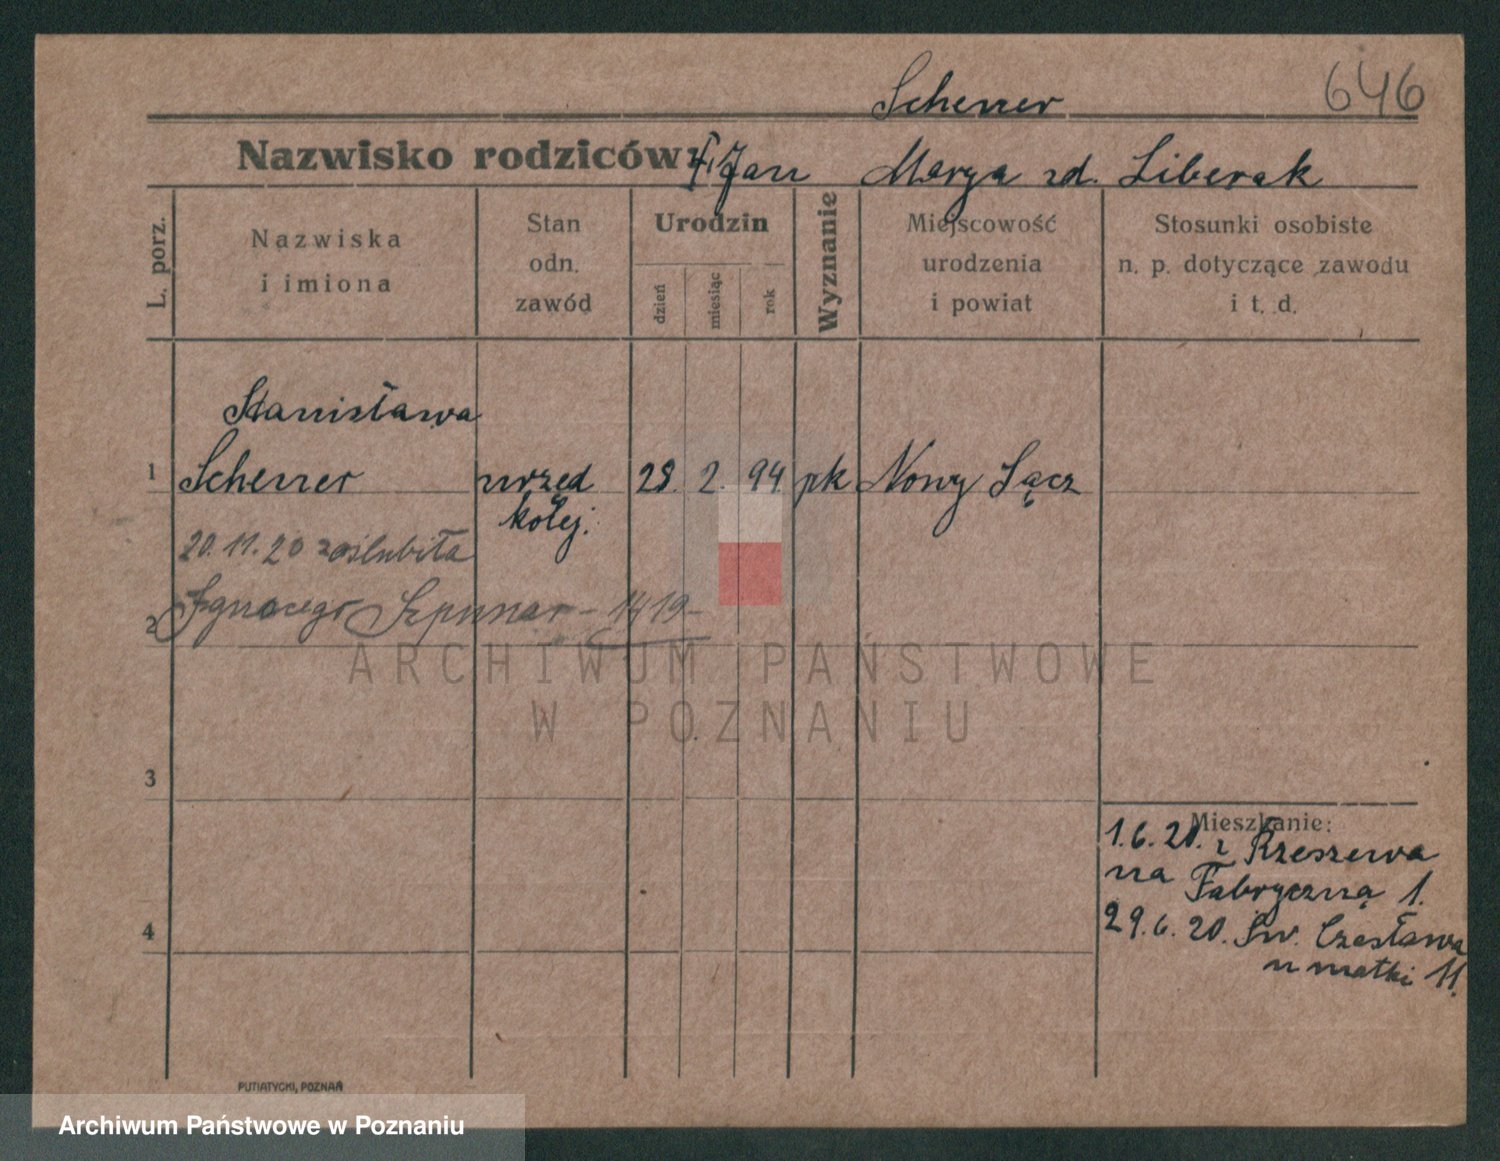 646
Scherrer
Nazwisko rodziców: Jan Marya zd. Liberak
L. porz.
Nazwiska i imiona
Stan odn. zawód
Urodzin
dzień
miesiąc
rok
Wyznanie
Miejscowość urodzenia i powiat
Stosunki osobiste n. p. dotyczące zawodu i t. d.
Stanisława
1 Scherrer urzęd 28. 2. 94 rk Nowy Sącz
kolej.
20.11.20 zaślubiła
2 Ignacego Szpunar – 1419 –
ARCHIWUM PAŃSTWOWE
W POZNANIU
3
Mieszkanie:
1.6.20. z Rzeszowa
na Fabryczną 1.
4
29.6.20. Św. Czesława
u matki 11.
PUTIATYCKI, POZNAŃ
Archiwum Państwowe w Poznaniu